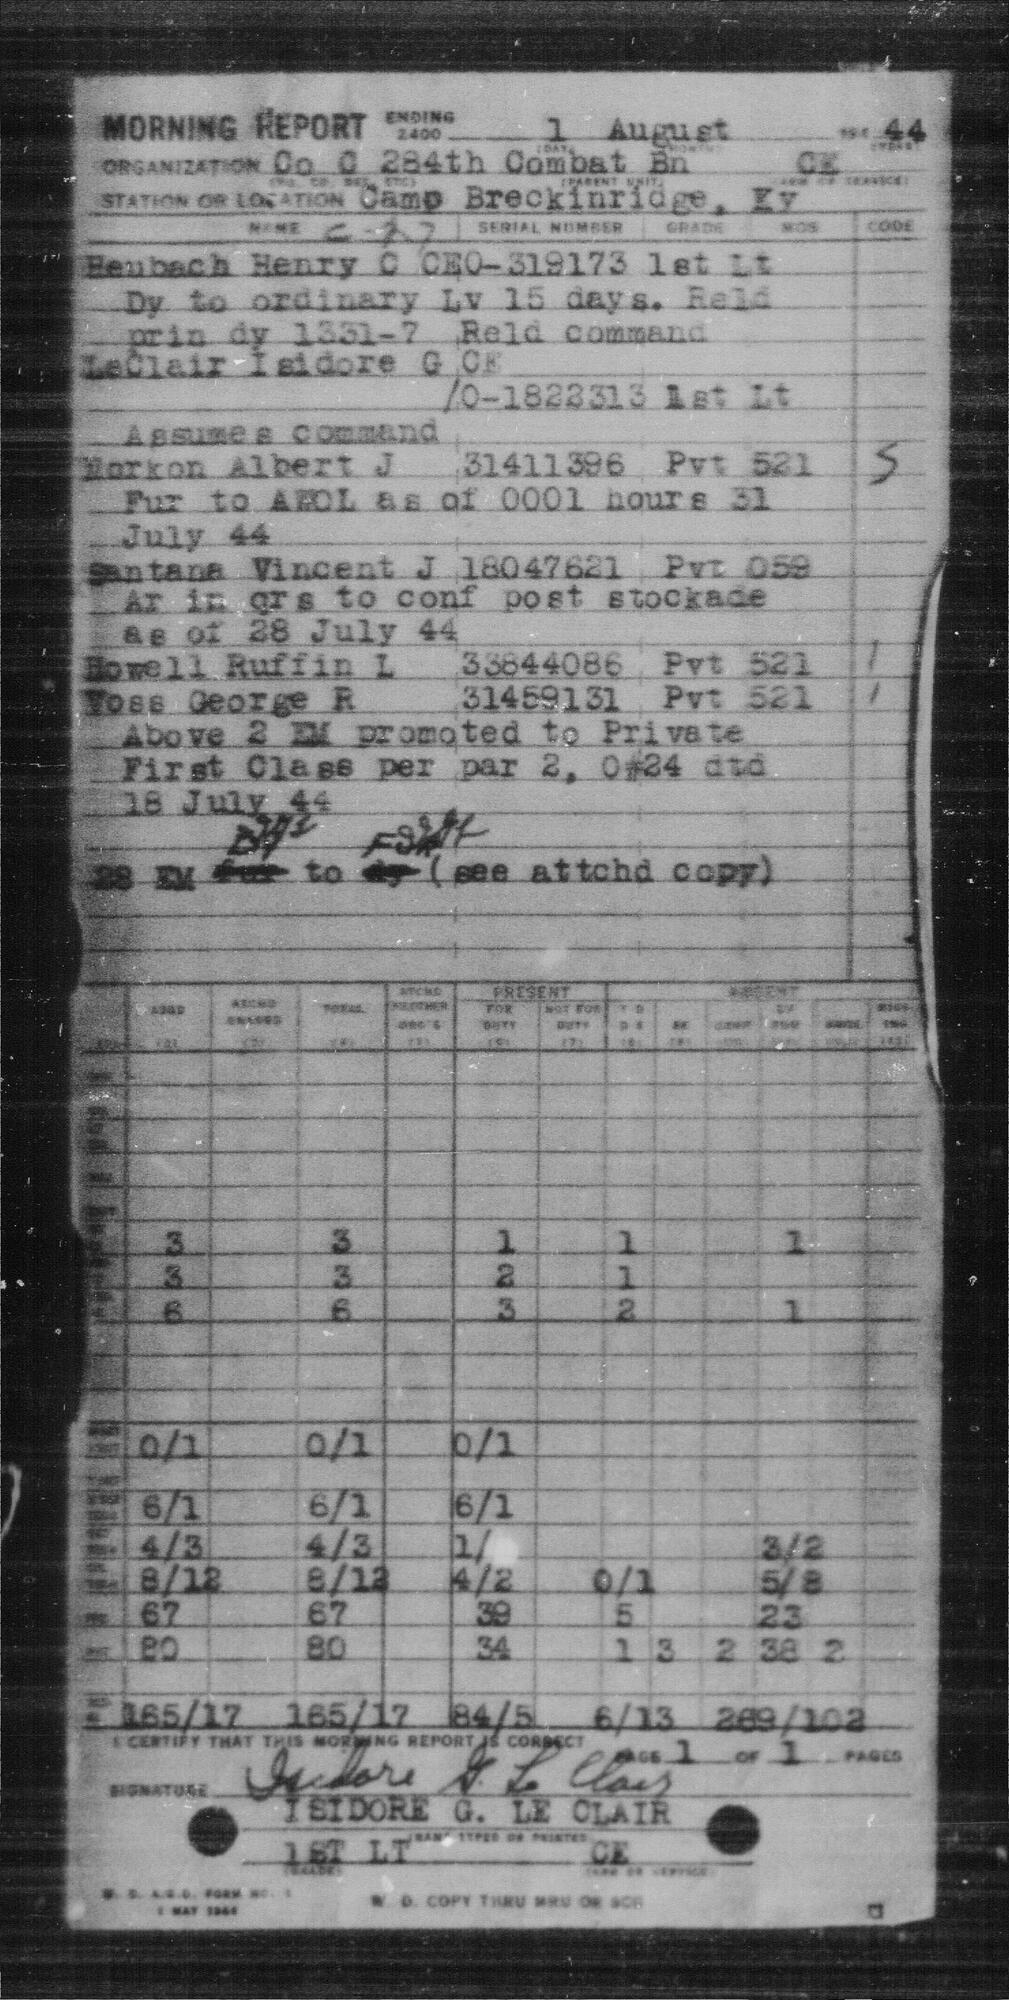 MORNING REPORT ENDING 2400 1 August 44
ORGANIZATION Co C 284th Combat Bn CE
STATION OR LOCATION Camp Breckinridge, Ky
NAME SERIAL NUMBER GRADE MOS CODE
Heubach Henry C CE O-319173 1st Lt
Dy to ordinary Lv 15 days. Reld
prin dy 1331-7 Reld command
LeClair Isidore G CE
/O-1822313 1st Lt
Assumes command
Morkon Albert J 31411396 Pvt 521 5
Fur to AWOL as of 0001 hours 31
July 44
Santana Vincent J 18047621 Pvt 059
Ar in qrs to conf post stockade
as of 28 July 44
Howell Ruffin L 33844086 Pvt 521 /
Voss George R 31459131 Pvt 521 /
Above 2 EM promoted to Private
First Class per par 2, O#24 dtd
18 July 44
28 EM to (see attchd copy)
PRESENT ABSENT
ASGD TOTAL FOR DUTY NOT FOR DUTY
3 3 1 1 1
3 3 2 1
6 6 3 2 1
0/1 0/1 0/1
6/1 6/1 6/1
4/3 4/3 1/ 3/2
8/12 8/12 4/2 0/1 5/8
67 67 39 5 23
80 80 34 1 3 2 38 2
165/17 165/17 84/5 6/13 269/102
I CERTIFY THAT THIS MORNING REPORT IS CORRECT
PAGE 1 OF 1 PAGES
SIGNATURE Isidore G. Le Clair
ISIDORE G. LE CLAIR
(NAME TYPED OR PRINTED)
1ST LT CE
(GRADE) (ARM OR SERVICE)
W. D. A.G.O. FORM NO. 1
1 MAY 1944
W. D. COPY THRU MRU OR SCU